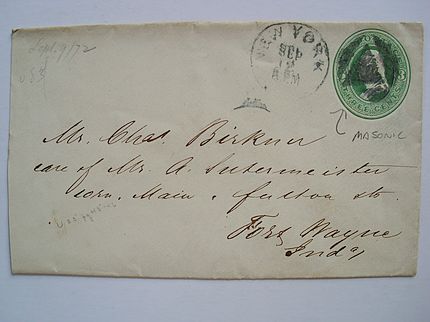 Sept. 9/72
U83
NEW YORK
SEP
12
THREE CENTS
3
MASONIC
Mr. Chas. Birkner
care of Mr. A. Sutermeister
corn. Main & fulton sts.
Fort Wayne
Inda